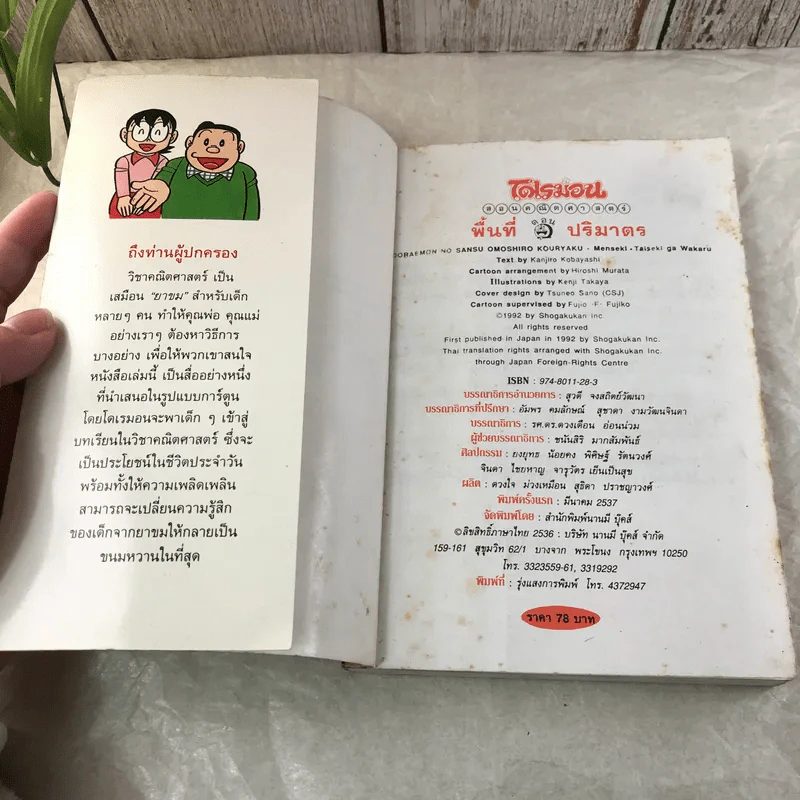 ถึงท่านผู้ปกครอง
วิชาคณิตศาสตร์ เป็น
เสมือน "ยาขม" สำหรับเด็ก
หลายๆ คน ทำให้คุณพ่อ คุณแม่
อย่างเราๆ ต้องหาวิธีการ
บางอย่าง เพื่อให้พวกเขาสนใจ
หนังสือเล่มนี้ เป็นสื่ออย่างหนึ่ง
ที่นำเสนอในรูปแบบการ์ตูน
โดยโดเรมอนจะพาเด็ก ๆ เข้าสู่
บทเรียนในวิชาคณิตศาสตร์ ซึ่งจะ
เป็นประโยชน์ในชีวิตประจำวัน
พร้อมทั้งให้ความเพลิดเพลิน
สามารถจะเปลี่ยนความรู้สึก
ของเด็กจากยาขมให้กลายเป็น
ขนมหวานในที่สุด
โดเรมอน
สอนคณิตศาสตร์
ตอน
พื้นที่ ปริมาตร
DORAEMON NO SANSU OMOSHIRO KOURYAKU - Menseki - Taiseki ga Wakaru
Text by Kanjiro Kobayashi
Cartoon arrangement by Hiroshi Murata
Illustrations by Kenji Takaya
Cover design by Tsuneo Sano (CSJ)
Cartoon supervised by Fujio ·F· Fujiko
©1992 by Shogakukan Inc.
All rights reserved
First published in Japan in 1992 by Shogakukan Inc.
Thai translation rights arranged with Shogakukan Inc.
through Japan Foreign-Rights Centre
ISBN : 974-8011-28-3
บรรณาธิการอำนวยการ : สุวดี จงสถิตย์วัฒนา
บรรณาธิการที่ปรึกษา : อัมพร คมลักษณ์ สุชาดา งามวัฒนจินดา
บรรณาธิการ : รศ.ดร.ดวงเดือน อ่อนน่วม
ผู้ช่วยบรรณาธิการ : ชนันสิริ มากสัมพันธ์
ศิลปกรรม : ยงยุทธ น้อยคง พิศิษฐ์ รัตนวงศ์
จินดา ไชยหาญ จารุวัตร เย็นเป็นสุข
ผลิต : ดวงใจ ม่วงเหมือน สุธิดา ปราชญาวงศ์
พิมพ์ครั้งแรก : มีนาคม 2537
จัดพิมพ์โดย : สำนักพิมพ์นานมี บุ๊คส์
©ลิขสิทธิ์ภาษาไทย 2536 : บริษัท นานมี บุ๊คส์ จำกัด
159-161 สุขุมวิท 62/1 บางจาก พระโขนง กรุงเทพฯ 10250
โทร. 3323559-61, 3319292
พิมพ์ที่ : รุ่งแสงการพิมพ์ โทร. 4372947
ราคา 78 บาท